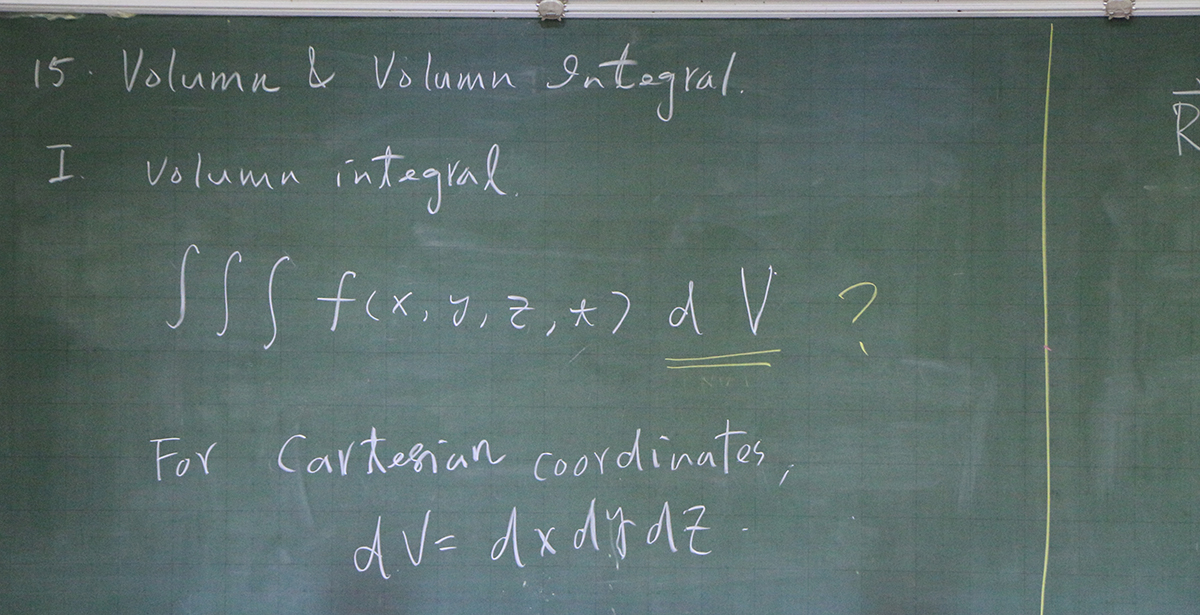 15. Volumn & Volumn Integral.
I. Volumn integral.
∫∫∫ f(x, y, z, t) dV ?
For Cartesian coordinates,
dV = dxdydz.
R